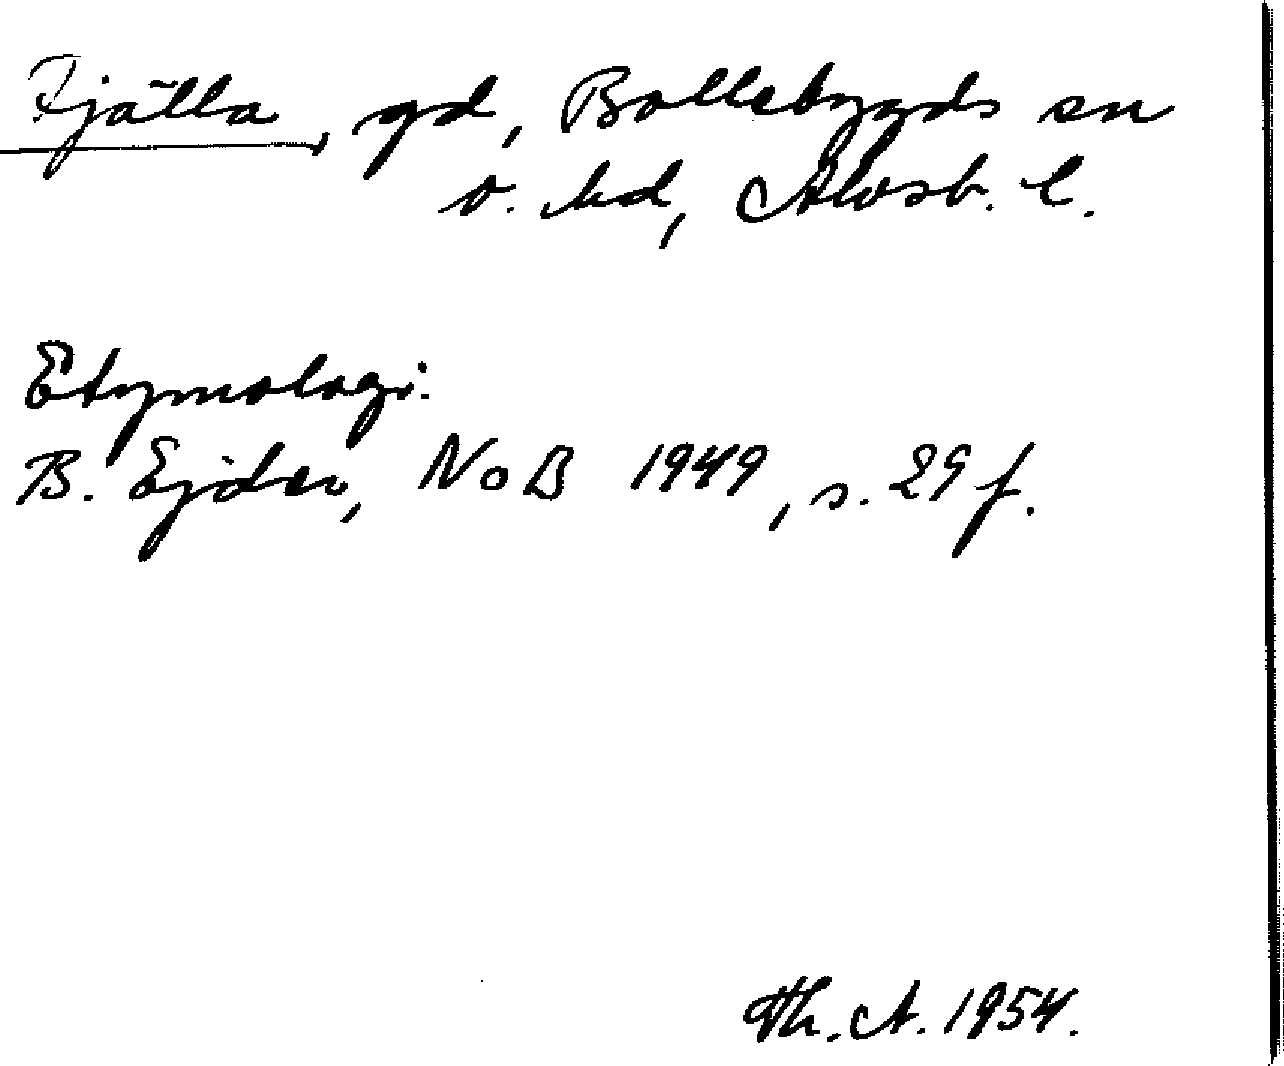 Fjälla, gd, Bollebygds sn
o. hd, Älvsb. l.
Etymologi.
B. Ejder, NoB 1949, s. 29 f.
Th. A. 1954.